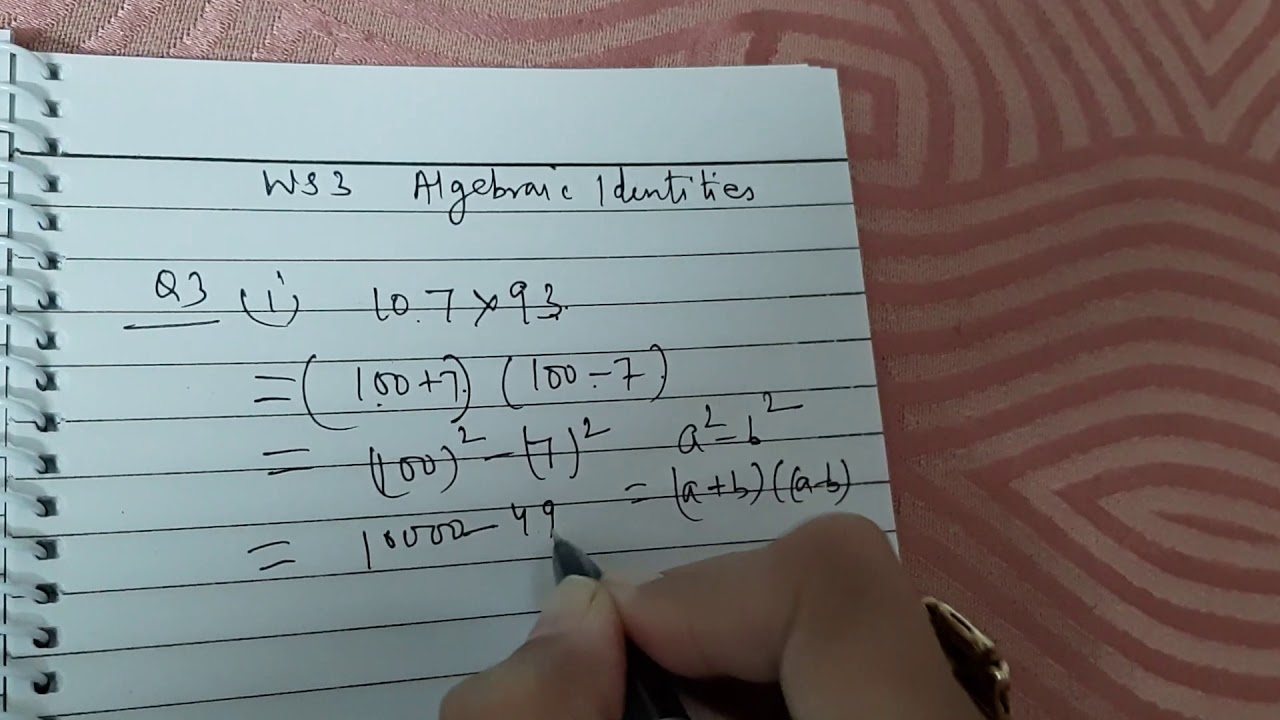 WS3 Algebraic Identities
Q3 (i) 10.7×93
=(100+7) (100-7)
= (100)² - (7)² a²-b²
= (a+b)(a-b)
= 10000-49